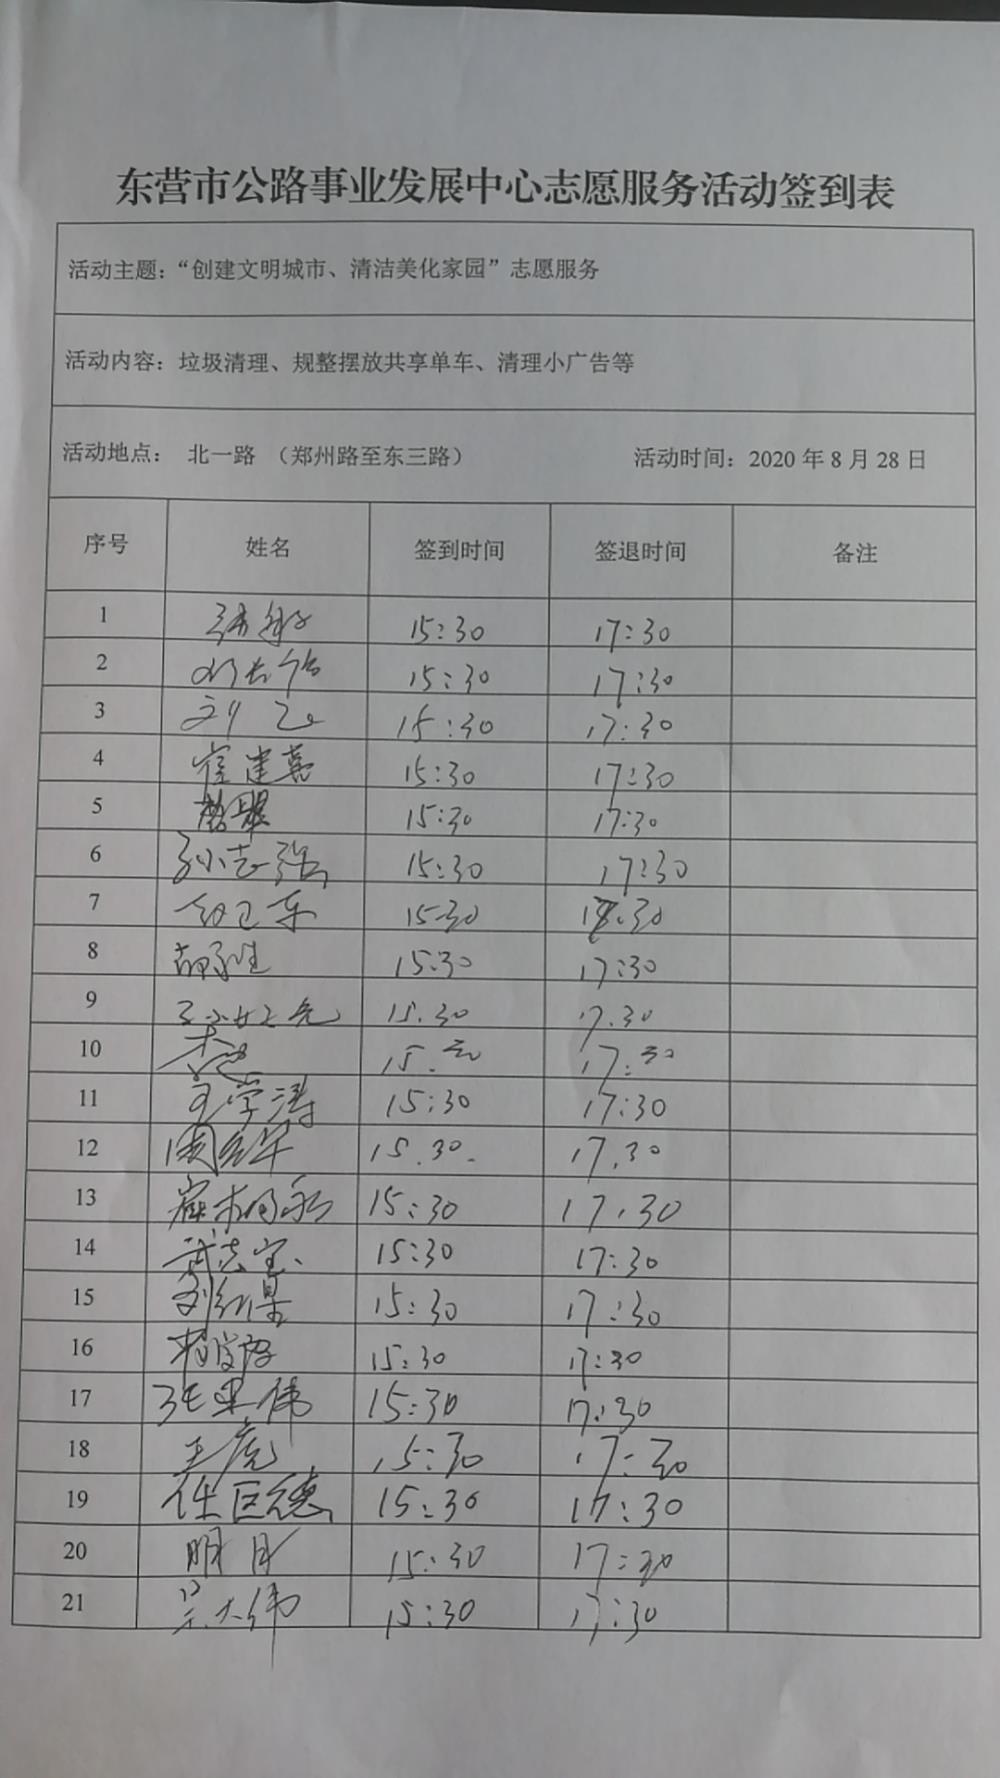 东营市公路事业发展中心志愿服务活动签到表
活动主题：“创建文明城市、清洁美化家园”志愿服务
活动内容：垃圾清理、规整摆放共享单车、清理小广告等
活动地点： 北一路 （郑州路至东三路） 活动时间：2020 年 8 月 28 日
序号 姓名 签到时间 签退时间 备注
1 15:30 17:30
2 15:30 17:30
3 15:30 17:30
4 崔建嘉 15:30 17:30
5 15:30 17:30
6 孙志强 15:30 17:30
7 15:30 17:30
8 15:30 17:30
9 15.30 17.30
10 15:30 17:30
11 王学涛 15:30 17:30
12 15.30. 17.30
13 15:30 17.30
14 武志宝 15:30 17:30
15 15:30 17:30
16 15:30 17:30
17 15:30 17:30
18 王虎 15:30 17:30
19 任巨德 15:30 17:30
20 明月 15:30 17:30
21 吴大伟 15:30 17:30